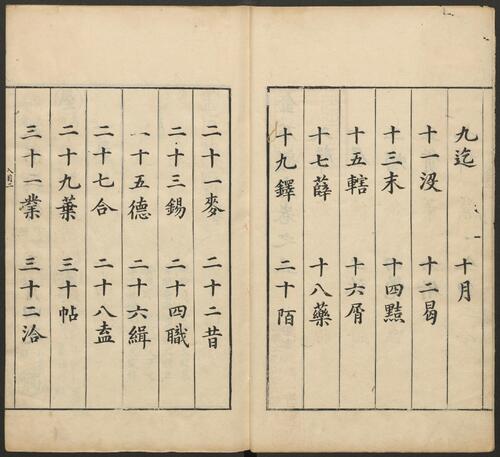 九迄 十月
十一沒 十二曷
十三末 十四黠
十五轄 十六屑
十七薛 十八藥
十九鐸 二十陌
二十一麥 二十二昔
二十三錫 二十四職
二十五德 二十六緝
二十七合 二十八盍
二十九葉 三十帖
三十一業 三十二洽